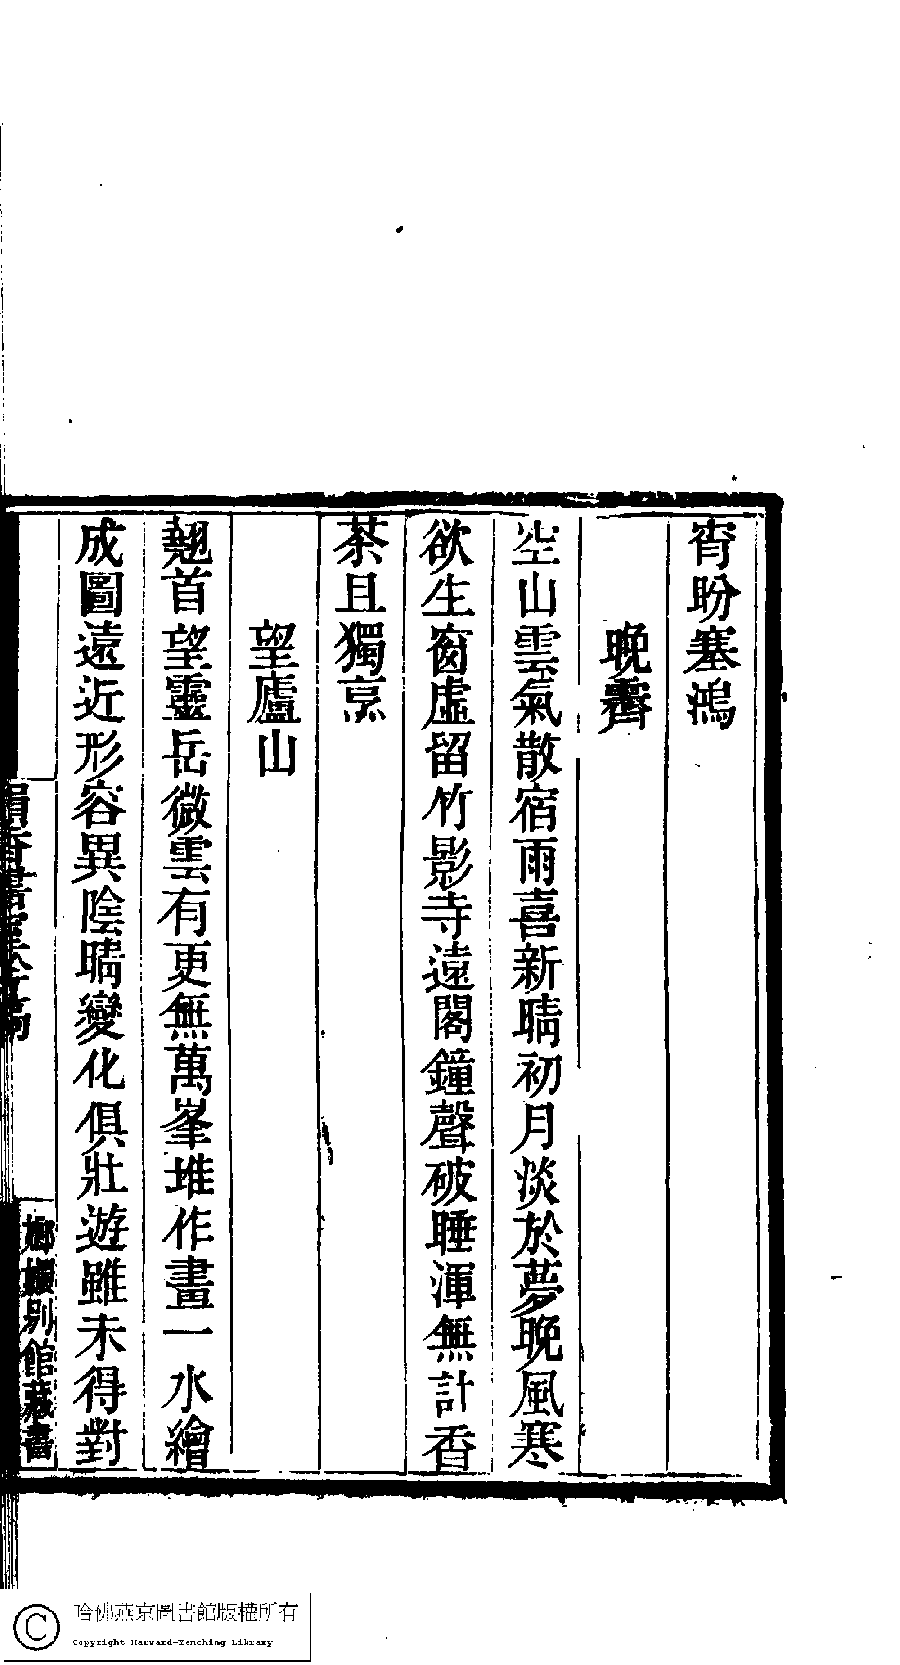 宵盼塞鴻
晚霽
空山雲氣散宿雨喜新晴初月淡於夢晚風寒
欲生窗虛留竹影寺遠閣鐘聲破睡渾無計香
茶且獨烹
望廬山
翹首望靈岳微雲有更無萬峯堆作畫一水繪
成圖遠近形容異陰晴變化俱壯遊雖未得對
韻香書室吟稿
嫏嬛別館藏書
哈佛燕京圖書館版權所有
Copyright Harvard-Yenching Library